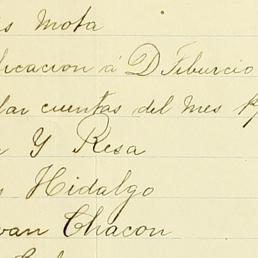 s Mota
licacion á D Tiburcio
lar cuentas del mes
Y Resa
s Hidalgo
van Chacon